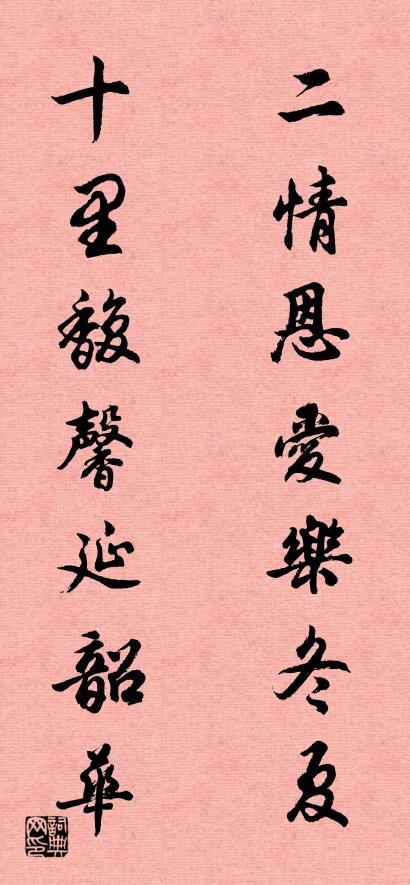 二情恩愛樂冬夏
十里馥馨延韶華
詞典网印